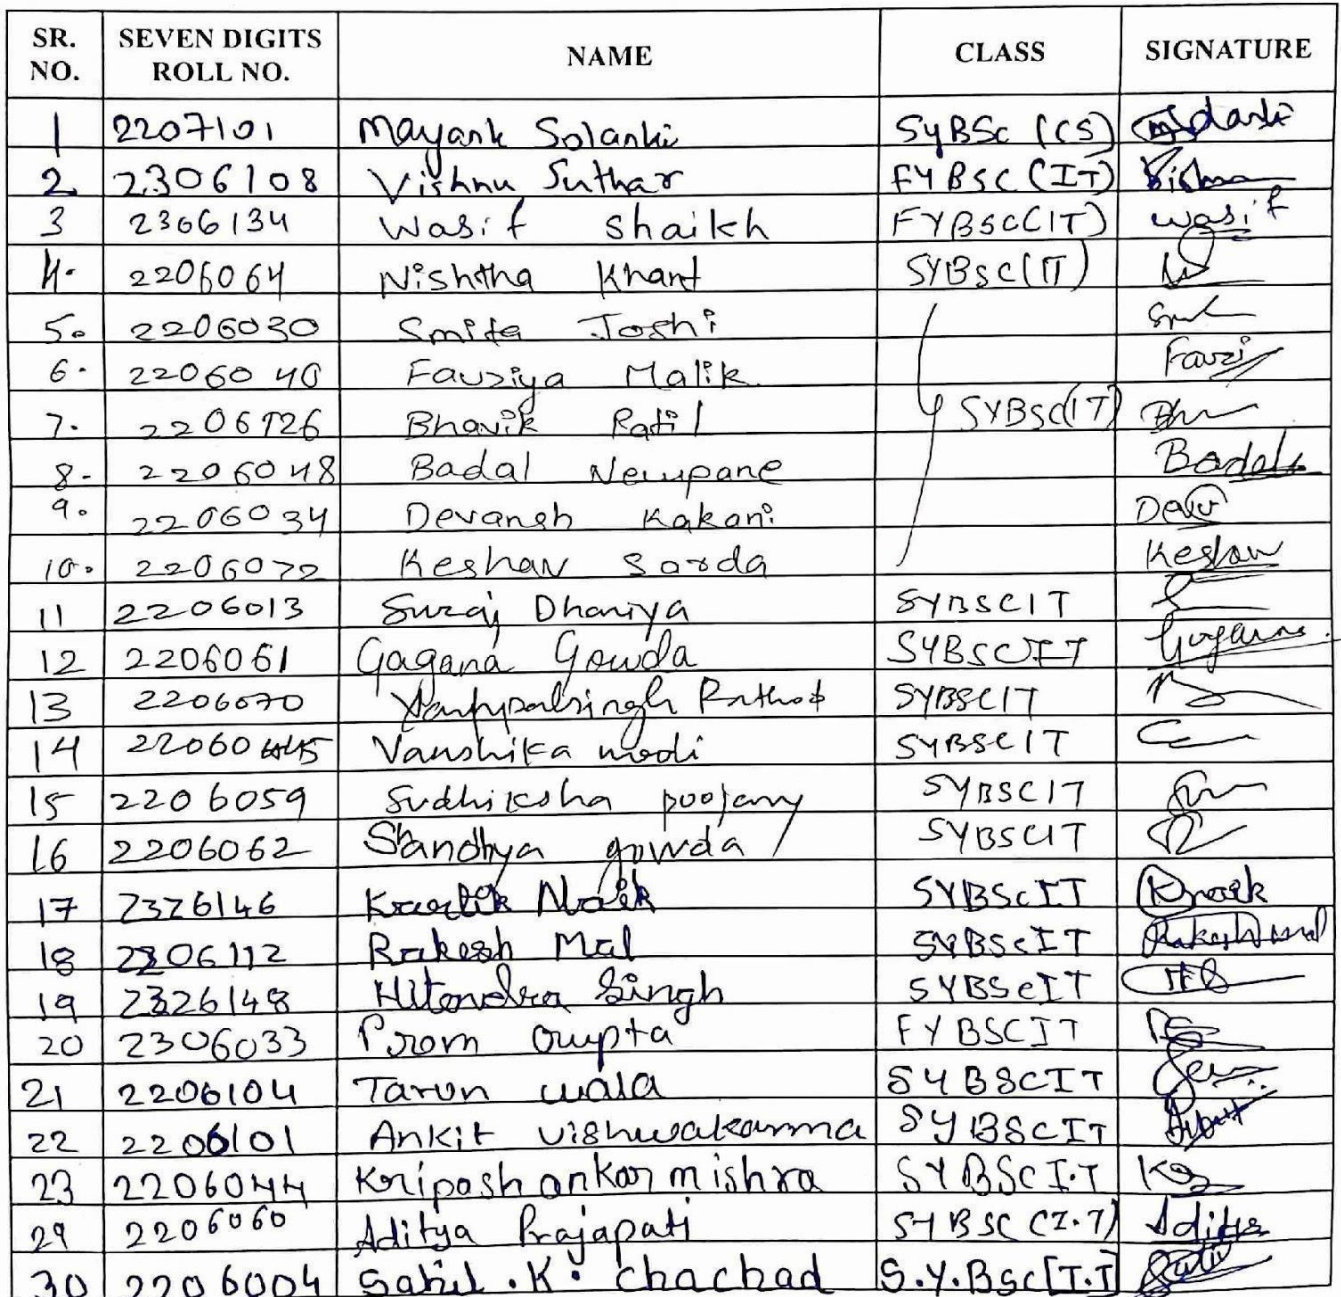 SR. NO. SEVEN DIGITS ROLL NO. NAME CLASS SIGNATURE
1 2207101 Mayank Solanki SyBSc (CS)
2 2306108 Vishnu Suthar FYBSC (IT)
3 2306134 Wasif Shaikh FYBSC(IT) Wasif
4. 2206064 Nishtha Khant SYBSC(IT)
5. 2206030 Smita Joshi
6. 2206040 Fauziya Malik Fauzi
7. 2206126 Bhavik Patil SYBSC(IT)
8. 2206048 Badal Neupane Badal
9. 2206034 Devansh Kakani Dev
10. 2206072 Keshav Sarda Keshav
11 2206013 Suraj Dhariya SYBSCIT
12 2206061 Gagana Gowda SYBSCIT
13 2206070 Rathod SYBSCIT
14 Vanshika modi SYBSCIT
15 2206059 Sudhiksha poojary SYBSCIT
16 2206062 Sandhya gowda SYBSCIT
17 2326146 Kartik Naik SYBScIT
18 2206112 Rakesh Mal SYBScIT Rakesh mal
19 2326148 Hitendra Singh SYBScIT
20 2306033 Prem Gupta FYBSCIT
21 2206104 Tarun wala SYBSCIT
22 2206101 Ankit vishwakarma SYBSCIT
23 2206044 Kripashankar mishra SYBSc I.T
29 2206060 Aditya Prajapati SYBSC (I.T) Aditya
30 2206004 Sahil .K. chachad S.Y.BSc[I.T]